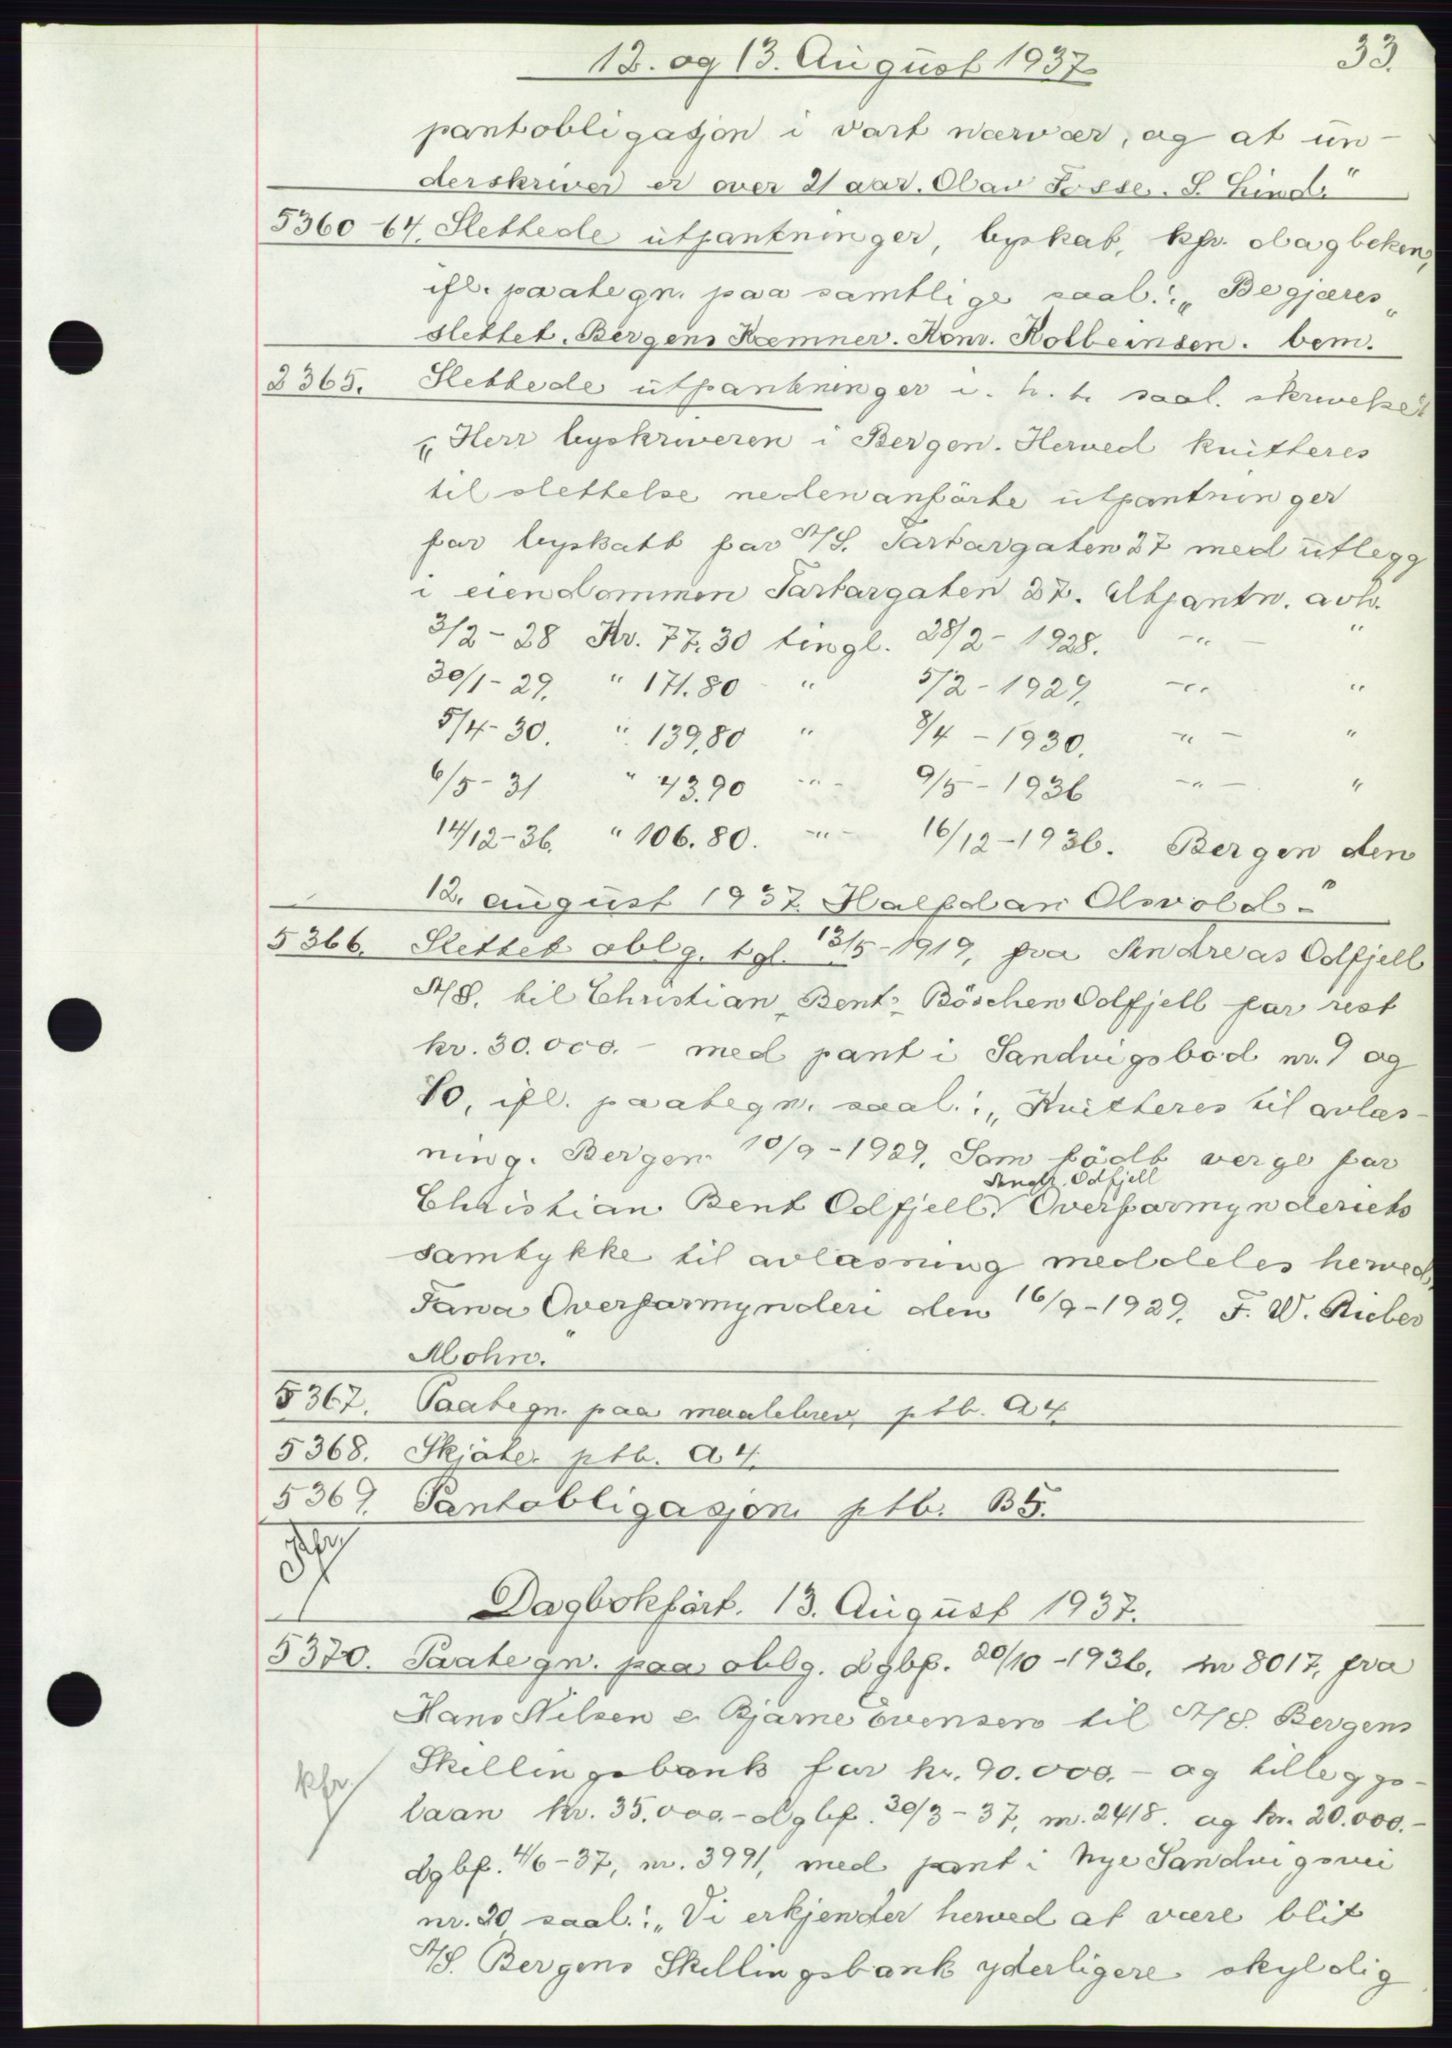 12. og 13. August 1937
33.
pantobligasjon i vart nærvær, og at un-
derskriver er over 21 aar. Olav Fosse. S. Lind."
5360-64. Slettede utpantninger, byskat, kfr. dagboken,
ifl. paategn. paa samtlige saal.: „Begjæres
slettet. Bergens Kæmner. Konr. Kolbeinsen. bem."
2365. Slettede utpantninger i. h. t. saal. skrivelse:
„Herr byskriveren i Bergen. Herved kvitteres
til slettelse nedenanförte utpantninger
for byskatt for A/S. Tartargaten 27 med utlegg
i eiendommen Tartargaten 27. Utpantn. avh.
3/2-28 Kr. 77.30 tingl. 28/2-1928. -"- "
30/1-29. " 171.80 " 5/2-1929. -"- "
5/4-30. " 139.80 " 8/4-1930. -"- "
6/5-31 " 43.90 -"- 9/5-1936 -"- "
14/12-36. " 106.80. -"- 16/12-1936. Bergen den
12. august 1937. Halfdan Olsvold-"
5366. Slettet oblg. tgl. 13/5-1919, fra Andreas Odfjell
A/S. til Christian Bent Böschen Odfjell for rest
kr. 30.000.- med pant i Sandvigsbod nr. 9 og
10, ifl. paategn. saal.: „Kvitteres til avløs-
ning. Bergen 10/9-1929. Som födt verge for
Andr. Odfjell
Christian Bent Odfjell. Overformynderiets
samtykke til avlösning meddeles herved.
Fana Overformynderi den 16/9-1929. F. W. Rieber
Mohn."
5367. Paategn. paa maalebrev, ptb. A4.
5368. Skjöte. ptb. A4.
5369. Pantobligasjon. ptb. B5.
Kfr
Dagbokfört. 13. August 1937.
5370. Paategn. paa oblg. dgbf. 20/10-1936, nr 8017, fra
Hans Nilsen & Bjarne Evensen til A/S. Bergens
kfr.
Skillingsbank for kr. 90.000.- og tilleggs-
laan kr. 35.000.- dgbf. 30/3-37, nr. 2418. og kr. 20.000.-
dgbf. 4/6-37, nr. 3991, med pant i Nye Sandvigsvei
nr. 20 saal.: „Vi erkjender herved at være blit
A/S. Bergens Skillingsbank yderligere skyldig